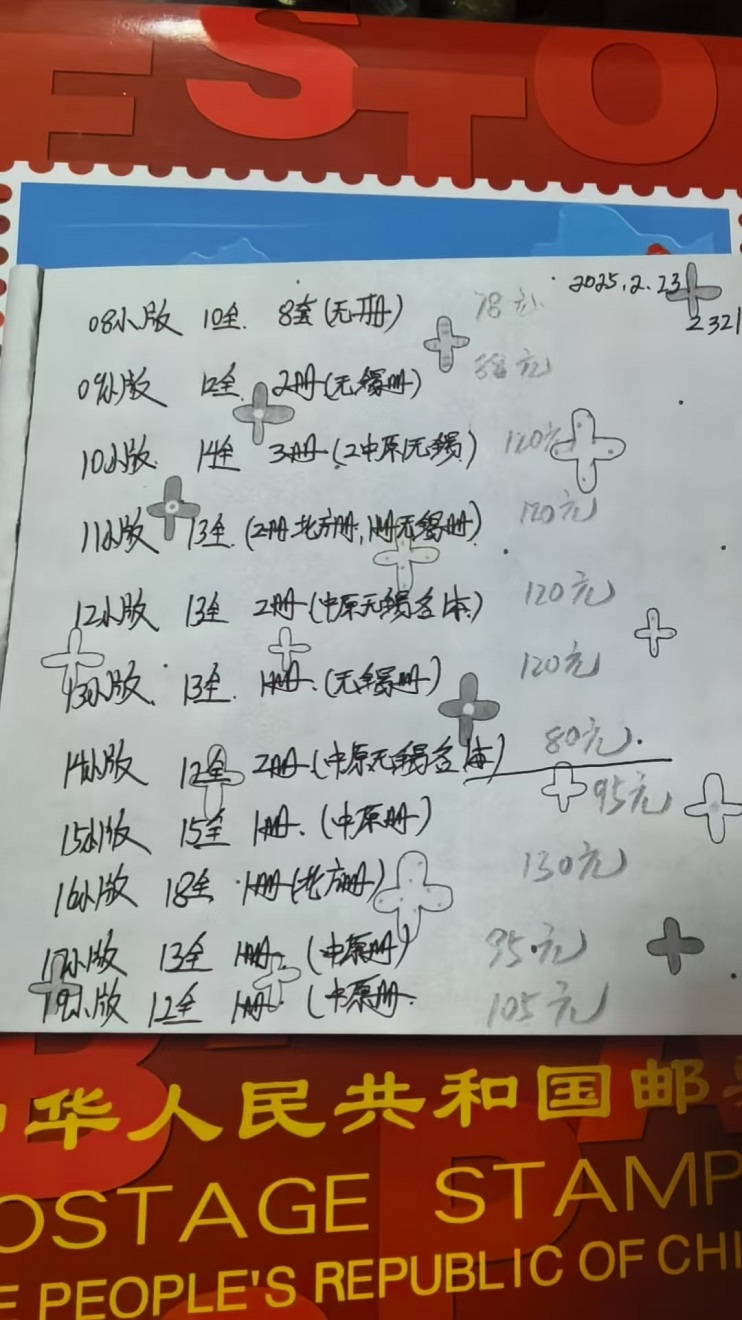 ESTO
2025.2.23
2321
08小版 10全 8套(无册) 78元
09小版 12全 2册(无锡册) 元
10小版 14全 3册(2中原1无锡) 120元
11小版 13全 (2册北方册,1册无锡册) 120元
12小版 13全 2册(中原无锡各1本) 120元
13小版 13全 1册(无锡册) 120元
14小版 12全 2册(中原无锡各1本) 80元
15小版 15全 1册(中原册) 95元
16小版 18全 1册(北方册) 130元
17小版 13全 1册(中原册) 95元
19小版 12全 1册(中原册 105元
华人民共和国邮
OSTAGE STAMP
E PEOPLE'S REPUBLIC OF CHI